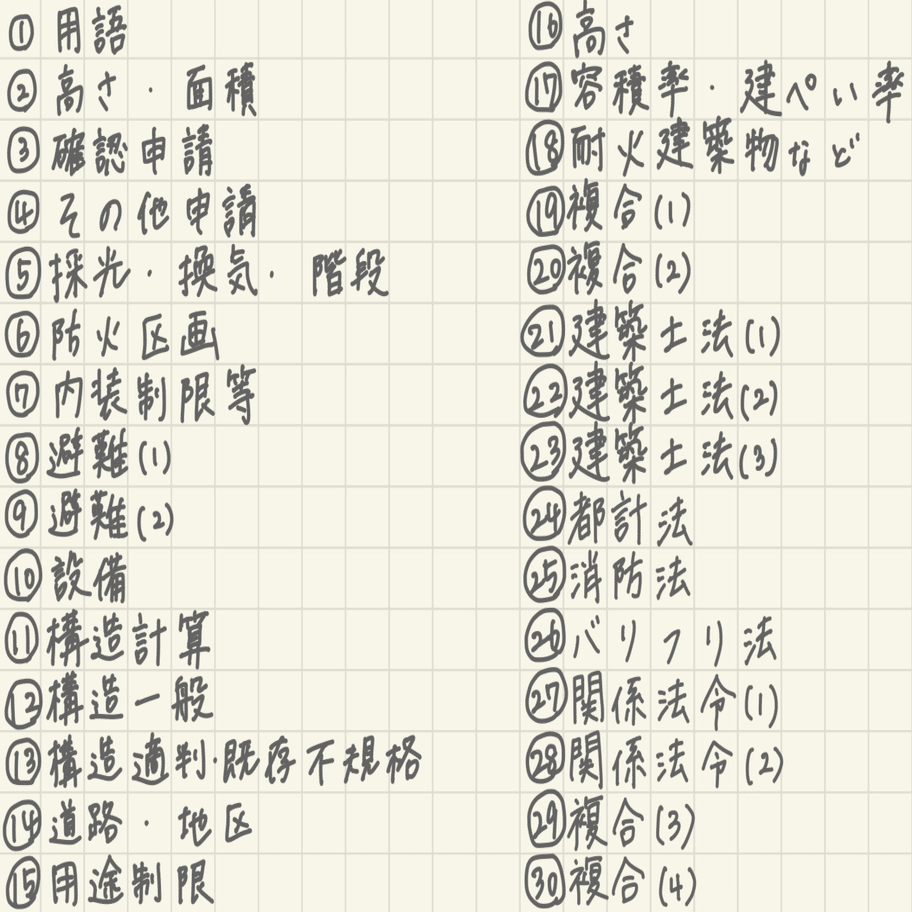 ① 用語
② 高さ・面積
③ 確認申請
④ その他申請
⑤ 採光・換気・階段
⑥ 防火区画
⑦ 内装制限等
⑧ 避難(1)
⑨ 避難(2)
⑩ 設備
⑪ 構造計算
⑫ 構造一般
⑬ 構造適判・既存不規格
⑭ 道路・地区
⑮ 用途制限
⑯ 高さ
⑰ 容積率・建ぺい率
⑱ 耐火建築物など
⑲ 複合(1)
⑳ 複合(2)
㉑ 建築士法(1)
㉒ 建築士法(2)
㉓ 建築士法(3)
㉔ 都計法
㉕ 消防法
㉖ バリフリ法
㉗ 関係法令(1)
㉘ 関係法令(2)
㉙ 複合(3)
㉚ 複合(4)